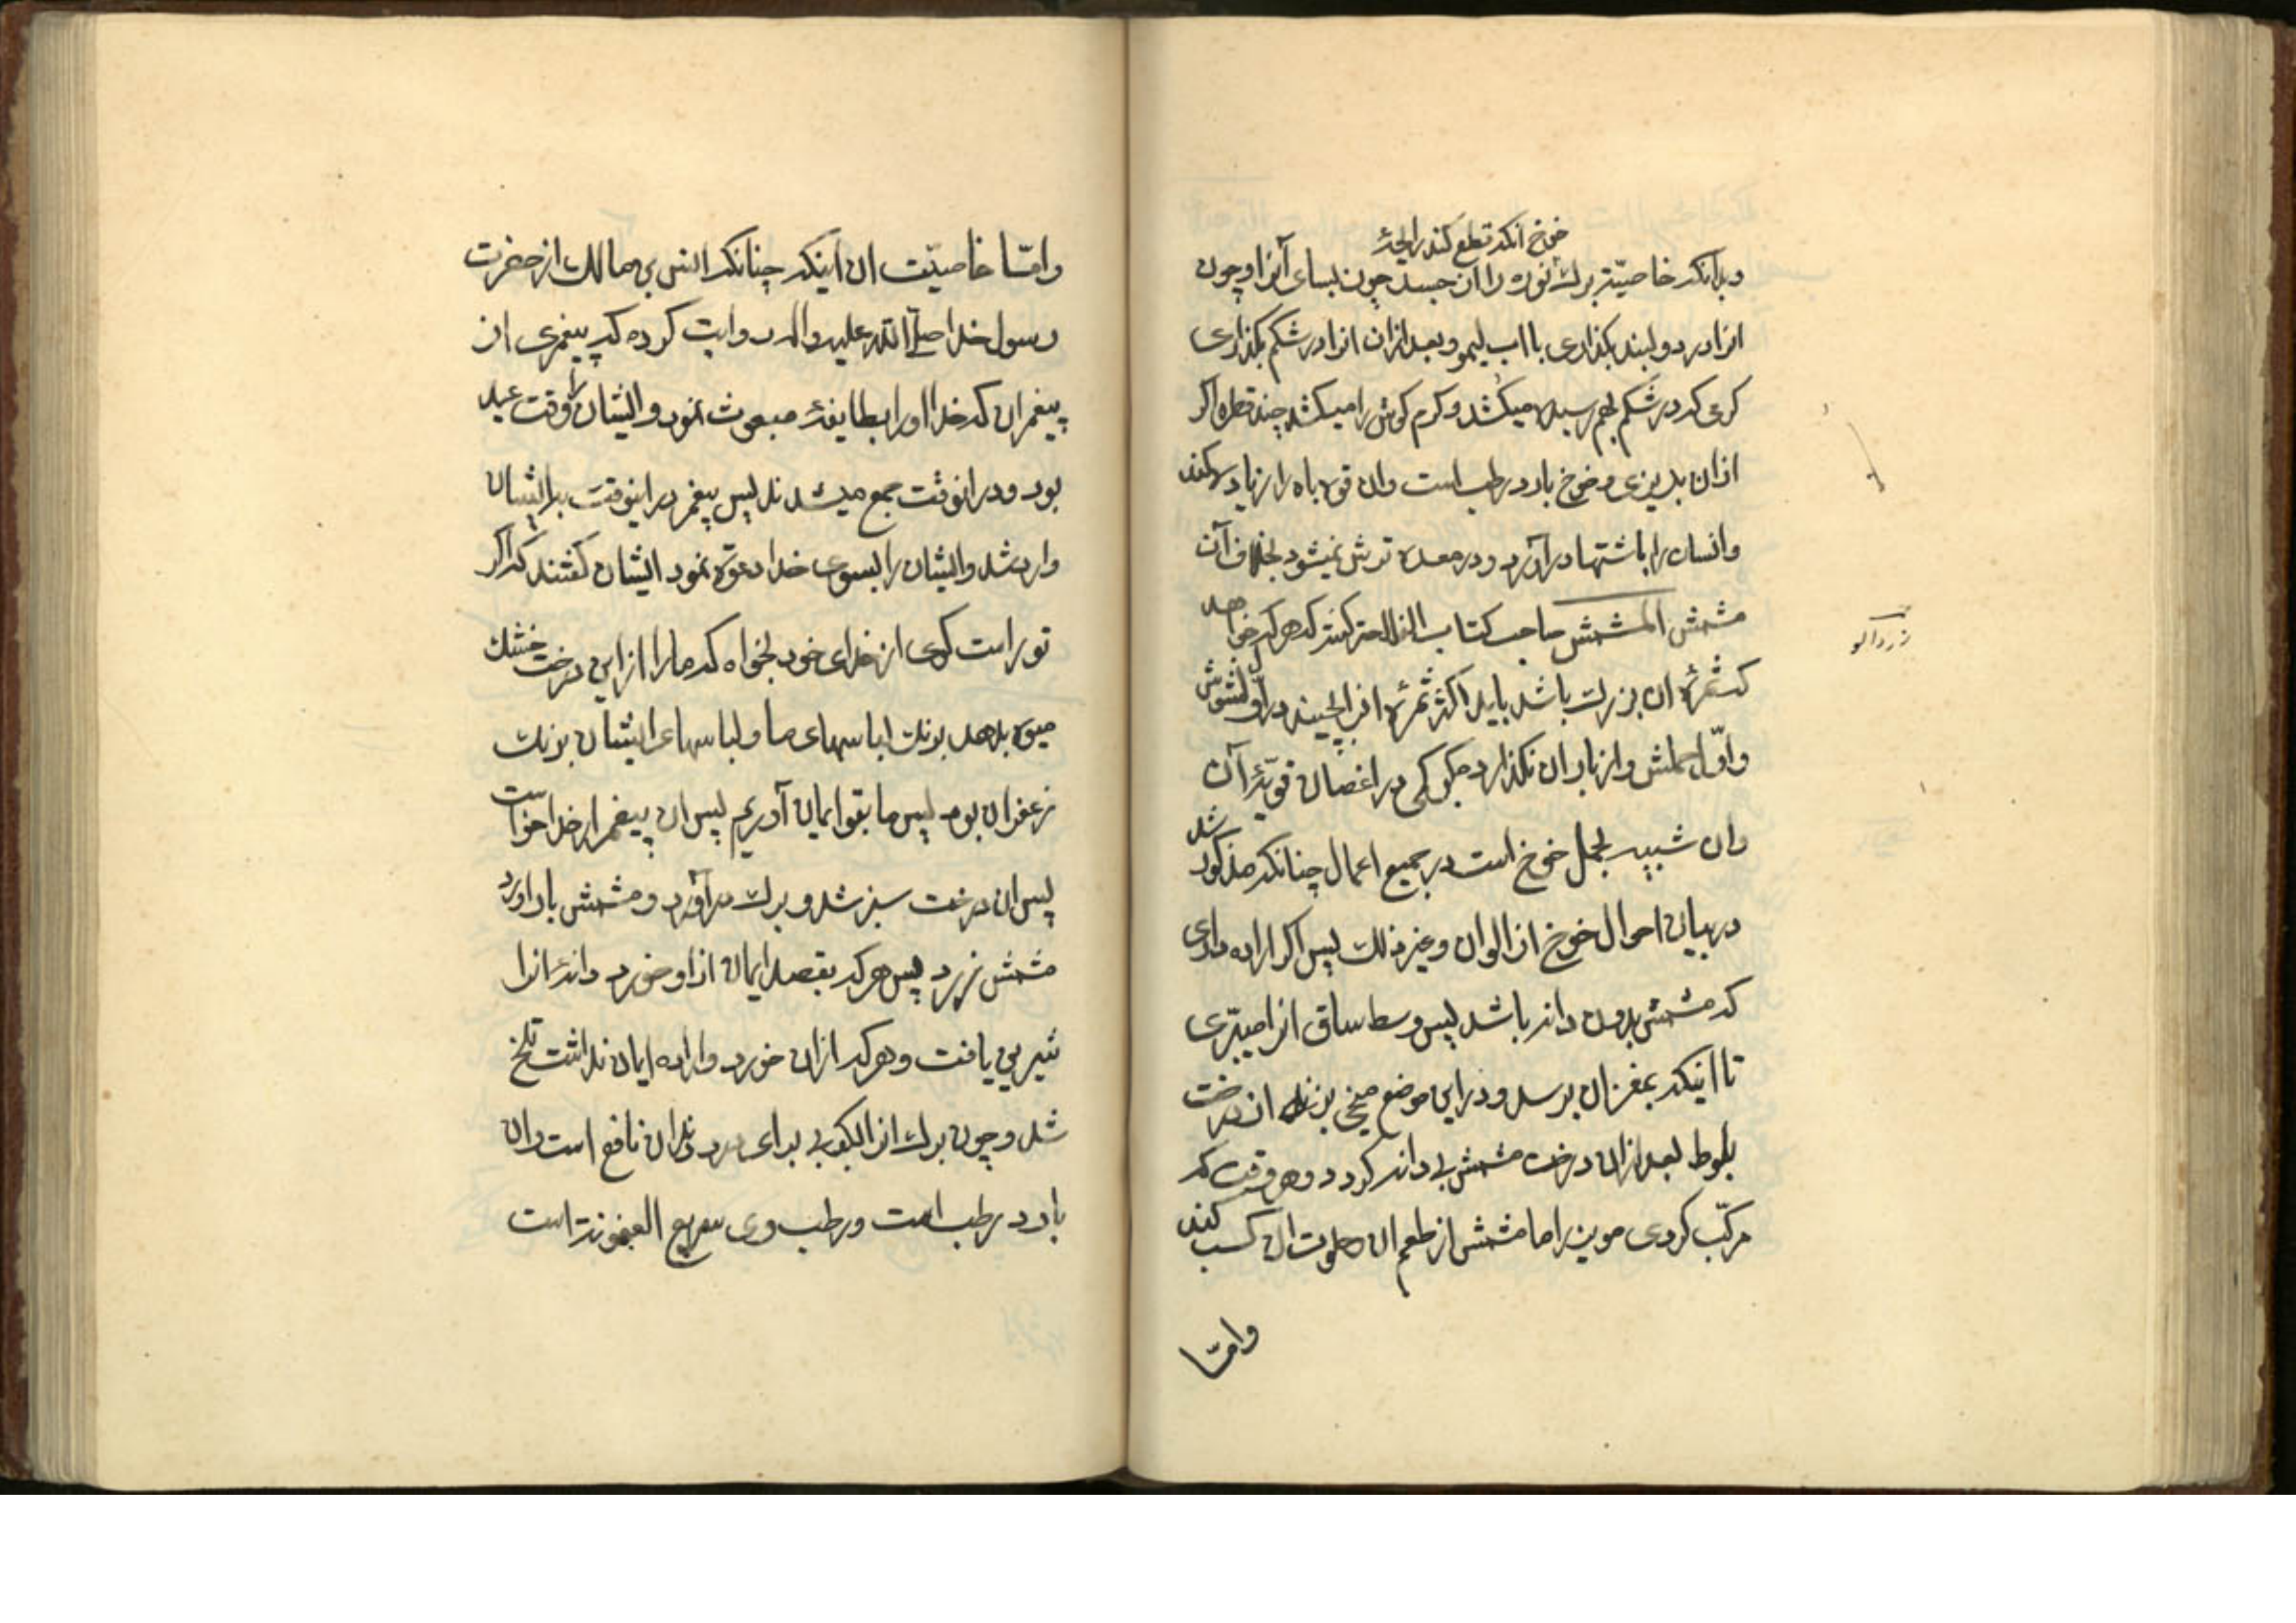 خوخ آنکه قطع کند رایحهٔ
و بدانکه خاصیّت برک نوره را از جسد چون بسای آنرا و چون
انرا در دو لبند بکذاری با اب لیمو و بعد ازان انرا در شکم بکذاری
کرمی که در شکم بهم رسیده میکشد و کرم کوش را میکشد چند قطره اکر
ازان بریزی و خوخ بارد رطب است وان قوه باه را زیاد میکند
وانسان را باشتها در آرد و در معده ترش نمیشود بخلاف آن
مشمش المشمش صاحب کتاب الفلاحه کفته که هر که خواهد
که ثمرهٔ ان بزرک باشد باید اکثر ثمرهٔ انرا بچیند در اول نشوش
و اوّل حملش و از بار ان نکذارد مکر کمی در اغصان قویّهٔ آن
وان شبیه بحمل خوخ است در جمیع اعمال چنانکه مذکور شد
در بیان احوال خوخ از الوان و غیر ذلک پس اکر اراده داری
که مشمش بدون دانه باشد پس وسط ساق انرا میبّری
تا اینکه بمغز ان برسد و در این موضع میخی بزند از درخت
بلوط بعد ازان درخت مشمش بی دانه کردد و هر وقت که
مرکّب کردی موین را با مشمش از طعم ان حلاوت ان کسب کند
وامّا
زردالو
وامّا خاصیّت ان اینکه چنانکه انس بن مالک از حضرت
رسول خدا صلی الله علیه واله روایت کرده که پیغمبری از
پیغمبران که خدا او را بطایفهٔ مبعوث نمود و ایشان را وقت عید
بود و در انوقت جمع میشدند پس پیغمبر در اینوقت بر ایشان
وارد شد و ایشان را بسوی خدا دعوة نمود ایشان کفتند که اکر
تو راست کوی از خدای خود بخواه که ما را از این درخت خشک
میوه بدهد برنک لباسهای ما و لباسهای ایشان برنک
زعفران بود پس ما بتو ایمان آوریم پس ان پیغمبر از خدا خواست
پس ان درخت سبز شد و برک در آورد و مشمش بار اورد
مشمش زرد پس هر که بقصد ایمان از او خورد دانهٔ انرا
شیرین یافت و هر که ازان خورد و اراده ایمان نداشت تلخ
شد و چون برک انرا بکوبی برای درد دندان نافع است وان
بارد رطب است و رطب وی سریع العفونة است